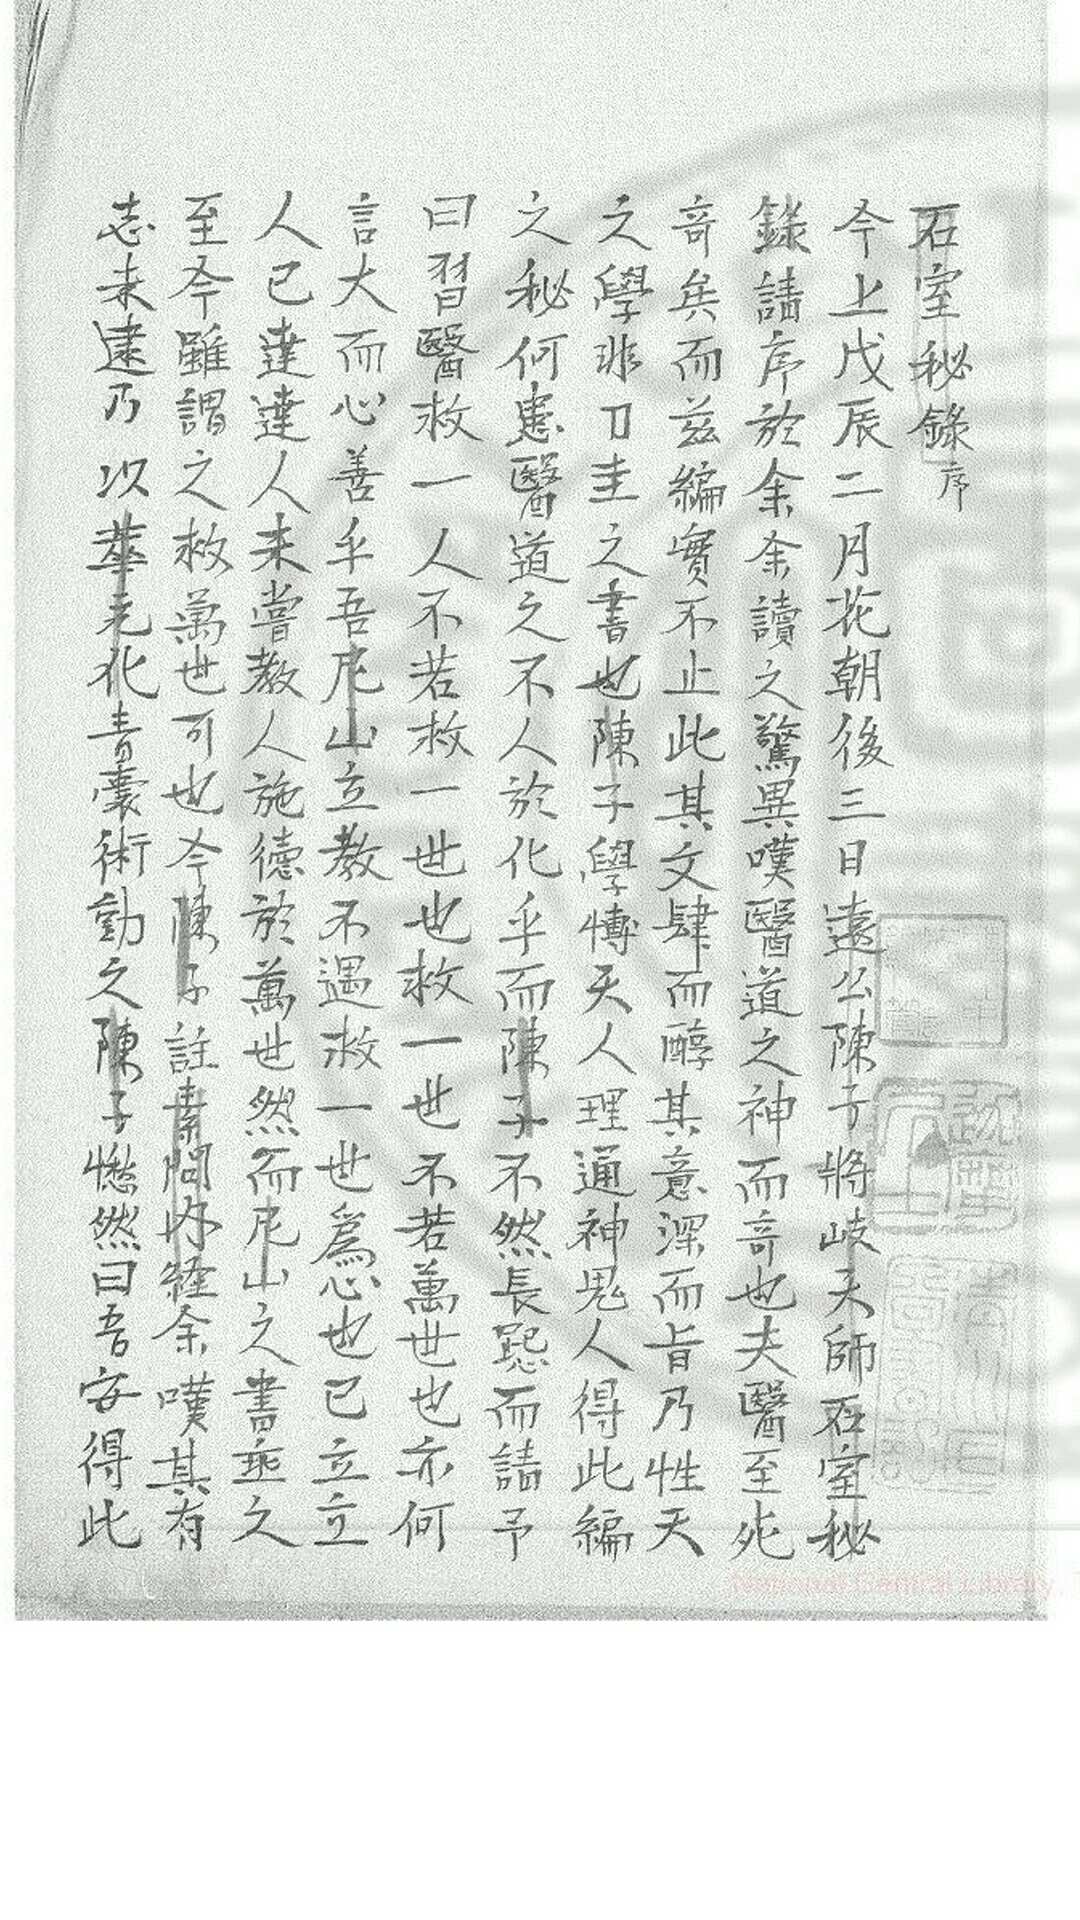 石室秘錄序
今上戊辰二月花朝後三日遠公陳子將岐天師石室秘
錄請序於余余讀之驚異嘆醫道之神而奇也夫醫至死
奇矣而茲編實不止此其文肆而醇其意深而旨乃性天
之學非刀圭之書也陳子學博天人理通神鬼人得此編
之秘何患醫道之不人於化乎而陳子不然長跽而請予
曰習醫救一人不若救一世也救一世不若萬世也亦何
言大而心善乎吾尼山立教不過救一世為心也已立立
人已達達人未嘗教人施德於萬世然而尼山之書垂之
至今雖謂之救萬世可也今陳子註素問內經余嘆其有
志未逮乃以華元化青囊術勤之陳子愀然曰吾安得此
National Central Library